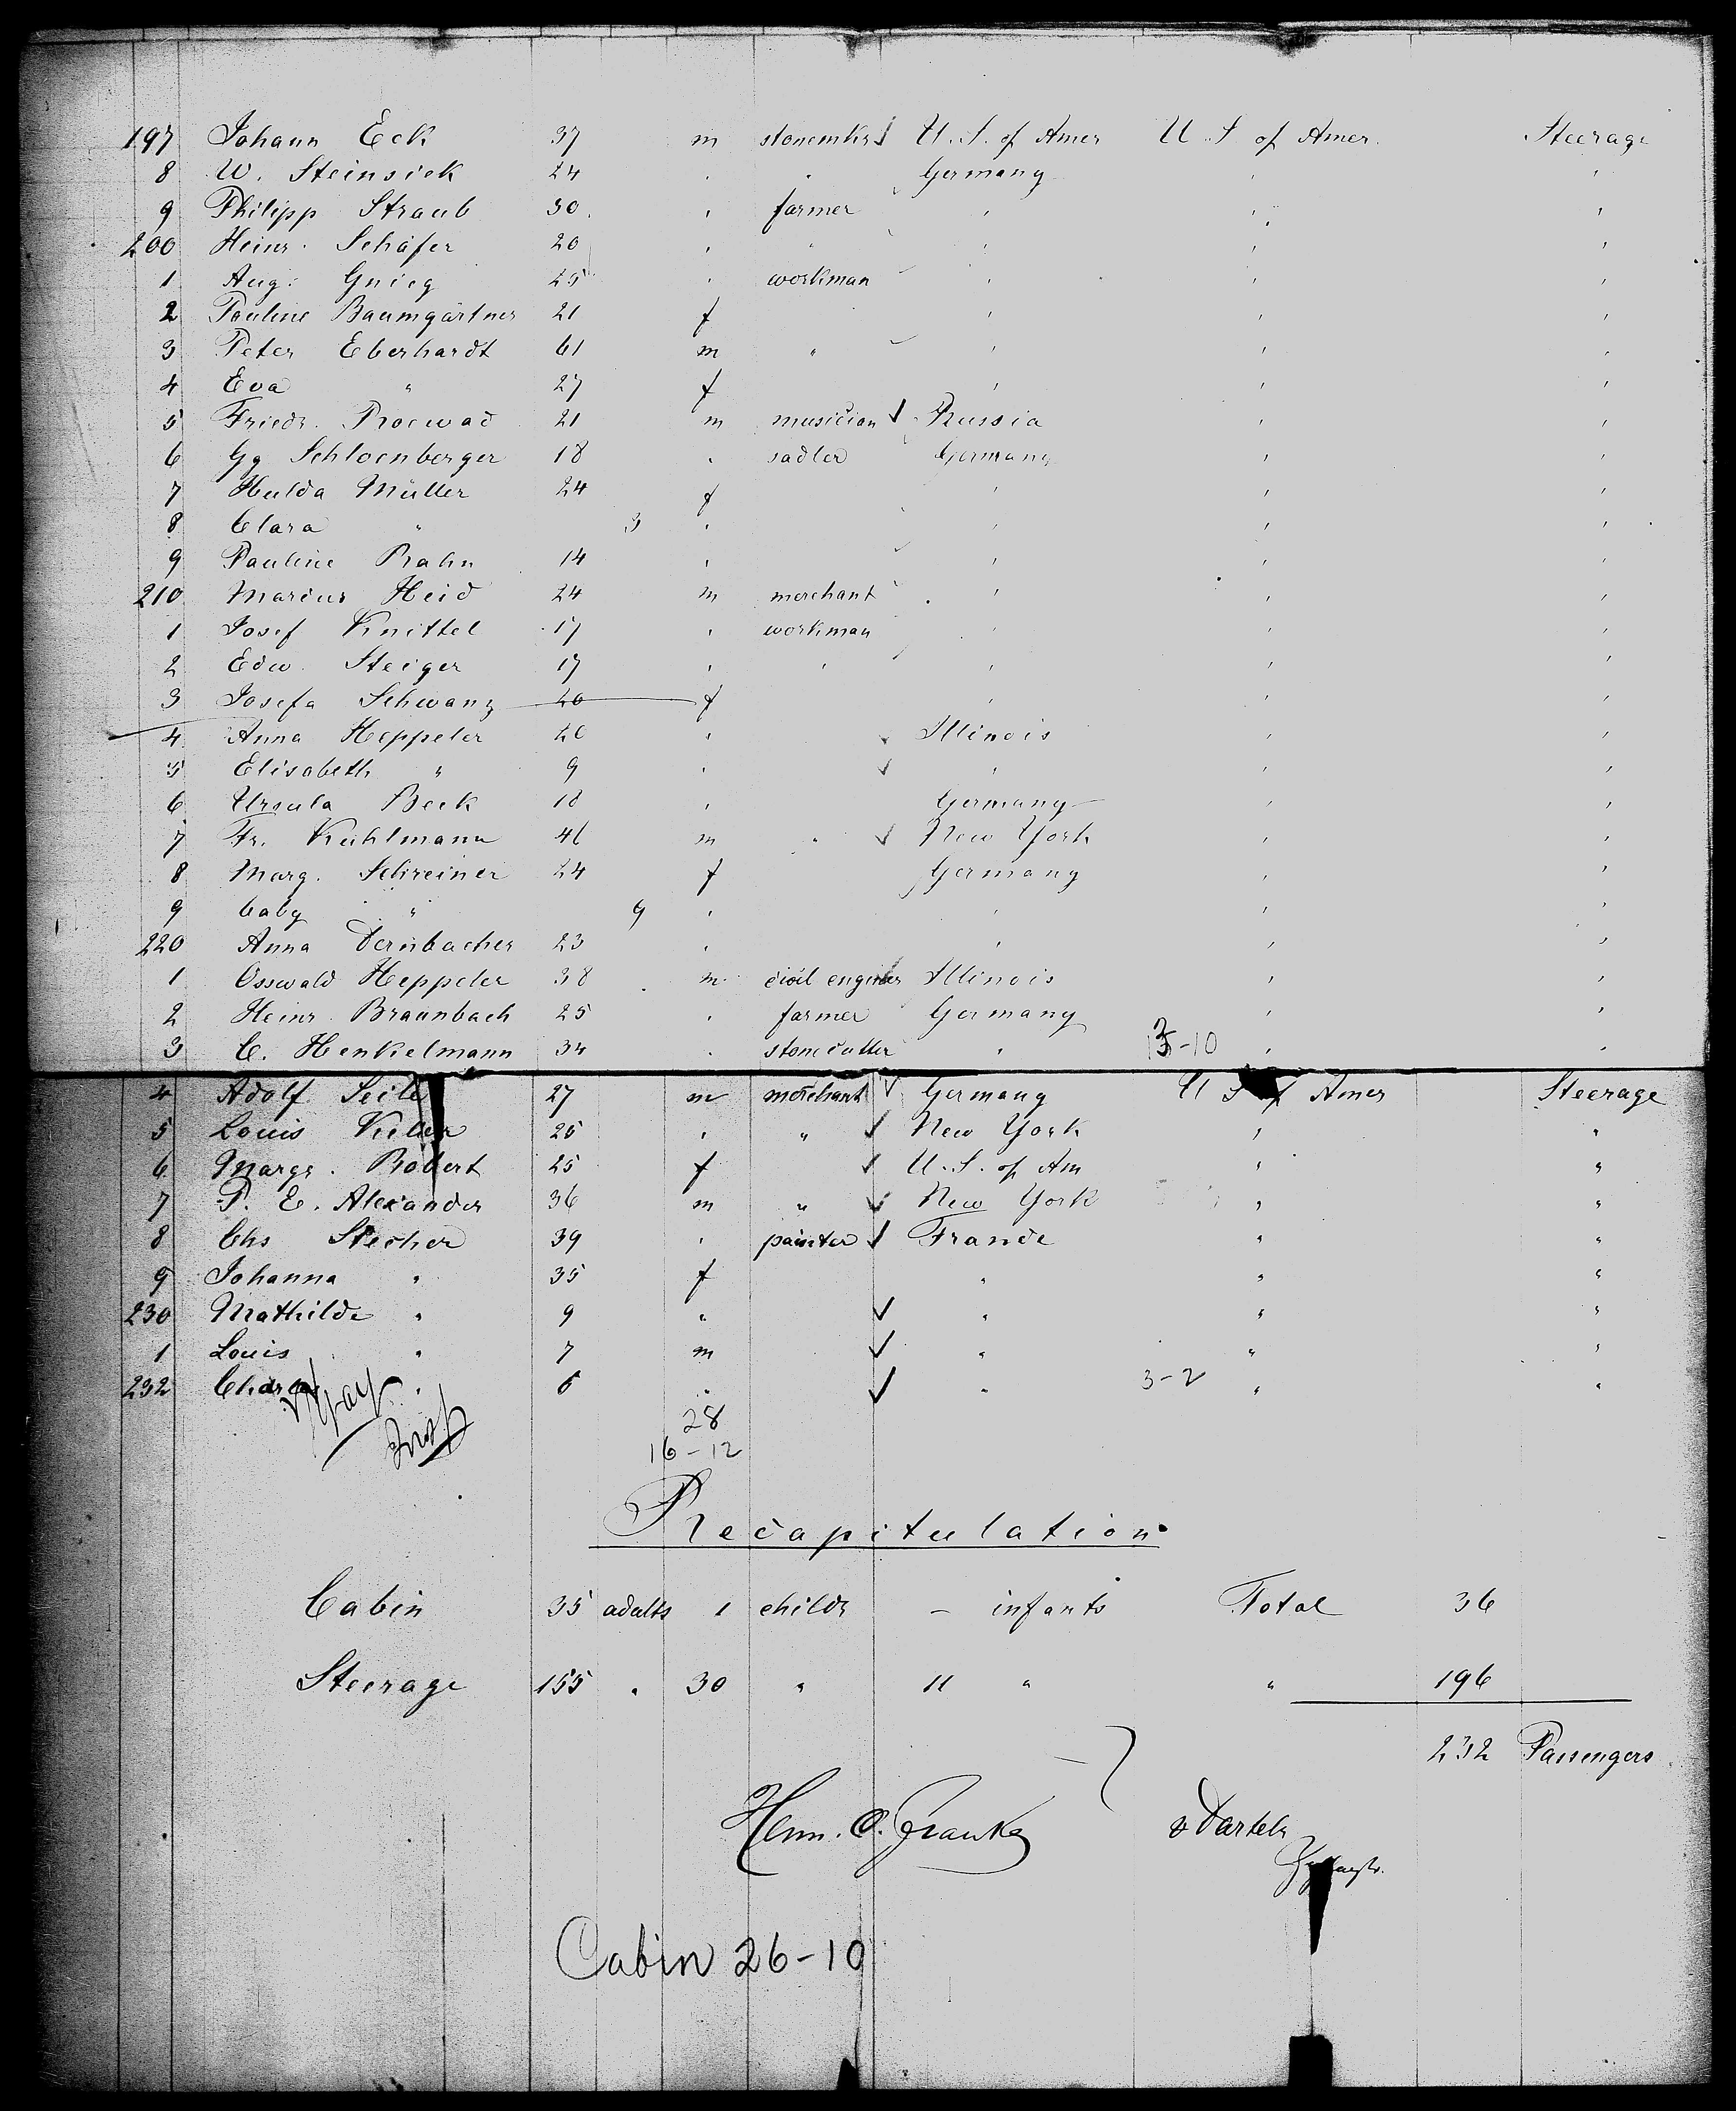 197 Johann Eck 37 m stonemkr U.S. of Amer U.S of Amer. Steerage
8 W. Steinsiek 24 " " Germany " "
9 Philipp Straub 30 " farmer " " "
200 Heinr. Schäfer 20 " " " " "
1 Aug. Gnieg 25 " workman " " "
2 Pauline Baumgärtner 21 f " " "
3 Peter Eberhardt 61 m " " " "
4 Eva " 27 f " " "
5 Friedr. 21 m musician Russia " "
6 Gg Schloenberger 18 " sadler Germany " "
7 Hulda Müller 24 f " " "
8 Clara " 3 " " " "
9 Pauline Rahn 14 " " " "
210 Marcus Heid 24 m merchant " " "
1 Josef Knittel 17 " workman " " "
2 Edw. Steiger 17 " " " " "
3 Josefa Schwanz 20 f " " "
4 Anna Heppeler 26 " Illinois " "
5 Elisabeth " 9 " " " "
6 Ursula Beck 18 " Germany " "
7 Fr. Kuhlmann 46 m " New York " "
8 Marg. Schreiner 24 f Germany " "
9 baby " 9 " " " "
220 Anna Dernbacher 23 " " " "
1 Osswald Heppeler 38 m civil engineer Illinois " "
2 Heinr. Braunbach 25 " farmer Germany " "
3 C. Henkelmann 34 " stonecutter " -10 " "
4 Adolf 27 m merchant Germany U S of Amer Steerage
5 Louis 25 " " New York " "
6 Margr. Robert 25 f U.S. of Am " "
7 P. E. Alexander 36 m " New York " "
8 Chs Stecher 39 " painter France " "
9 Johanna " 35 f " " "
230 Mathilde " 9 " " " "
1 Louis " 7 m " " "
232 " 6 " " 3-2 " "
Insp
28
16-12
Recapitulation
Cabin 35 adults 1 childr — infants Total 36
Steerage 155 " 30 " 11 " " 196
232 Passengers
Herm. C. Franke
Cabin 26-10